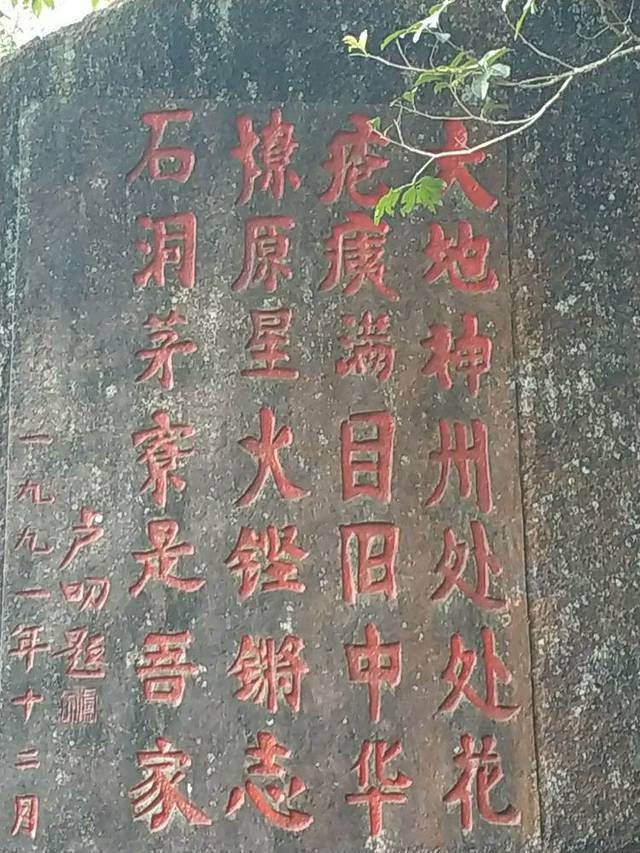 大地神州处处花
疮痍满目旧中华
燎原星火铿锵志
石洞茅寮是吾家
卢叨题
一九九一年十二月